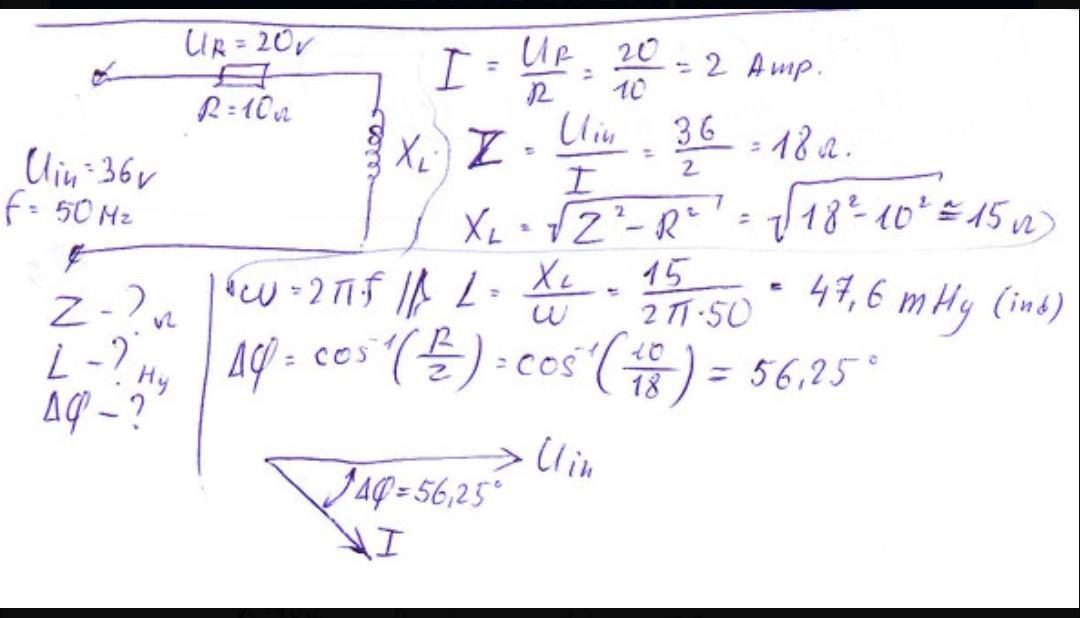 U_R = 20v
R = 10Ω
X_L
U_in = 36v
f = 50 Hz
I = U_R/R = 20/10 = 2 Amp.
Z = U_in/I = 36/2 = 18 Ω.
X_L = √(Z² − R²) = √(18² − 10²) ≅ 15 Ω
Z − ? Ω
L − ? Hy
Δφ − ?
ω = 2π·f // L = X_L/ω = 15/(2π·50) = 47,6 mHy (ind)
Δφ = cos⁻¹(R/Z) = cos⁻¹(10/18) = 56,25°
U_in
Δφ = 56,25°
I